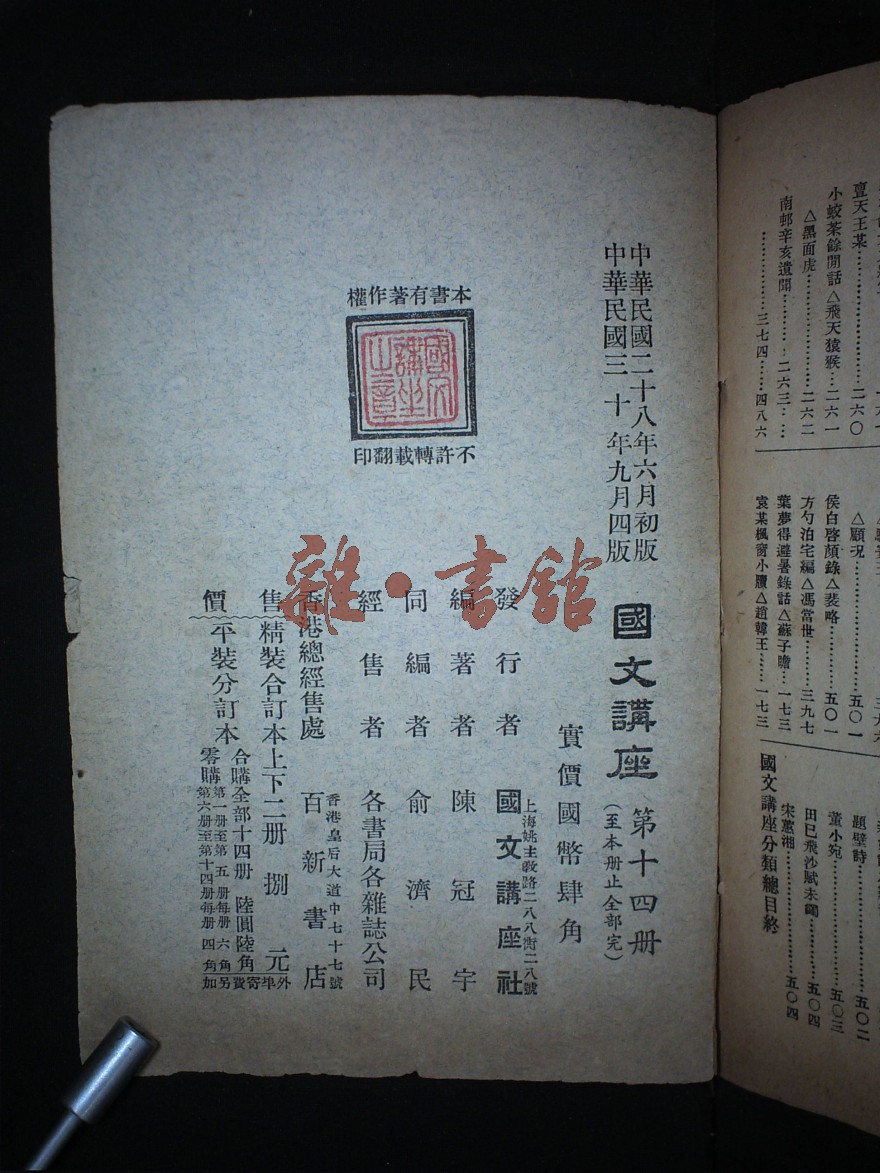 中華民國二十八年六月初版
中華民國三十年九月四版
國文講座 第十四册
(至本册止全部完)
實價國幣肆角
發行者 國文講座社
上海姚主教路二八八街二八號
編著者 陳冠宇
同編者 俞濟民
經售者 各書局各雜誌公司
香港總經售處 百新書店
香港皇后大道中七十七號
售價
精裝合訂本上下二册 捌元
平裝分訂本
合購全部十四册 陸圓陸角
零購
第一册至第五册每册六角
第六册至第十四册每册四角
外埠寄費另加
本書有著作權
國文講坐之章
不許轉載翻印
雜·書館
亶天王某……二六〇
小蛟茶餘閒話△飛天猿猴…二六一
△黑面虎……二六二
南邨辛亥遺聞……二六三……
……三七四……四八六
△顧况……五〇一
侯白啓顏錄△裴略……五〇一
方勺泊宅編△馮當世……三九七
葉夢得避暑錄話△蘇子瞻…一七三
袁某楓窗小牘△趙韓王……一七三
題壁詩……五〇二
董小宛……五〇三
田巳飛沙賦未鐲……五〇四
宋蕙湘……五〇四
國文講座分類總目終